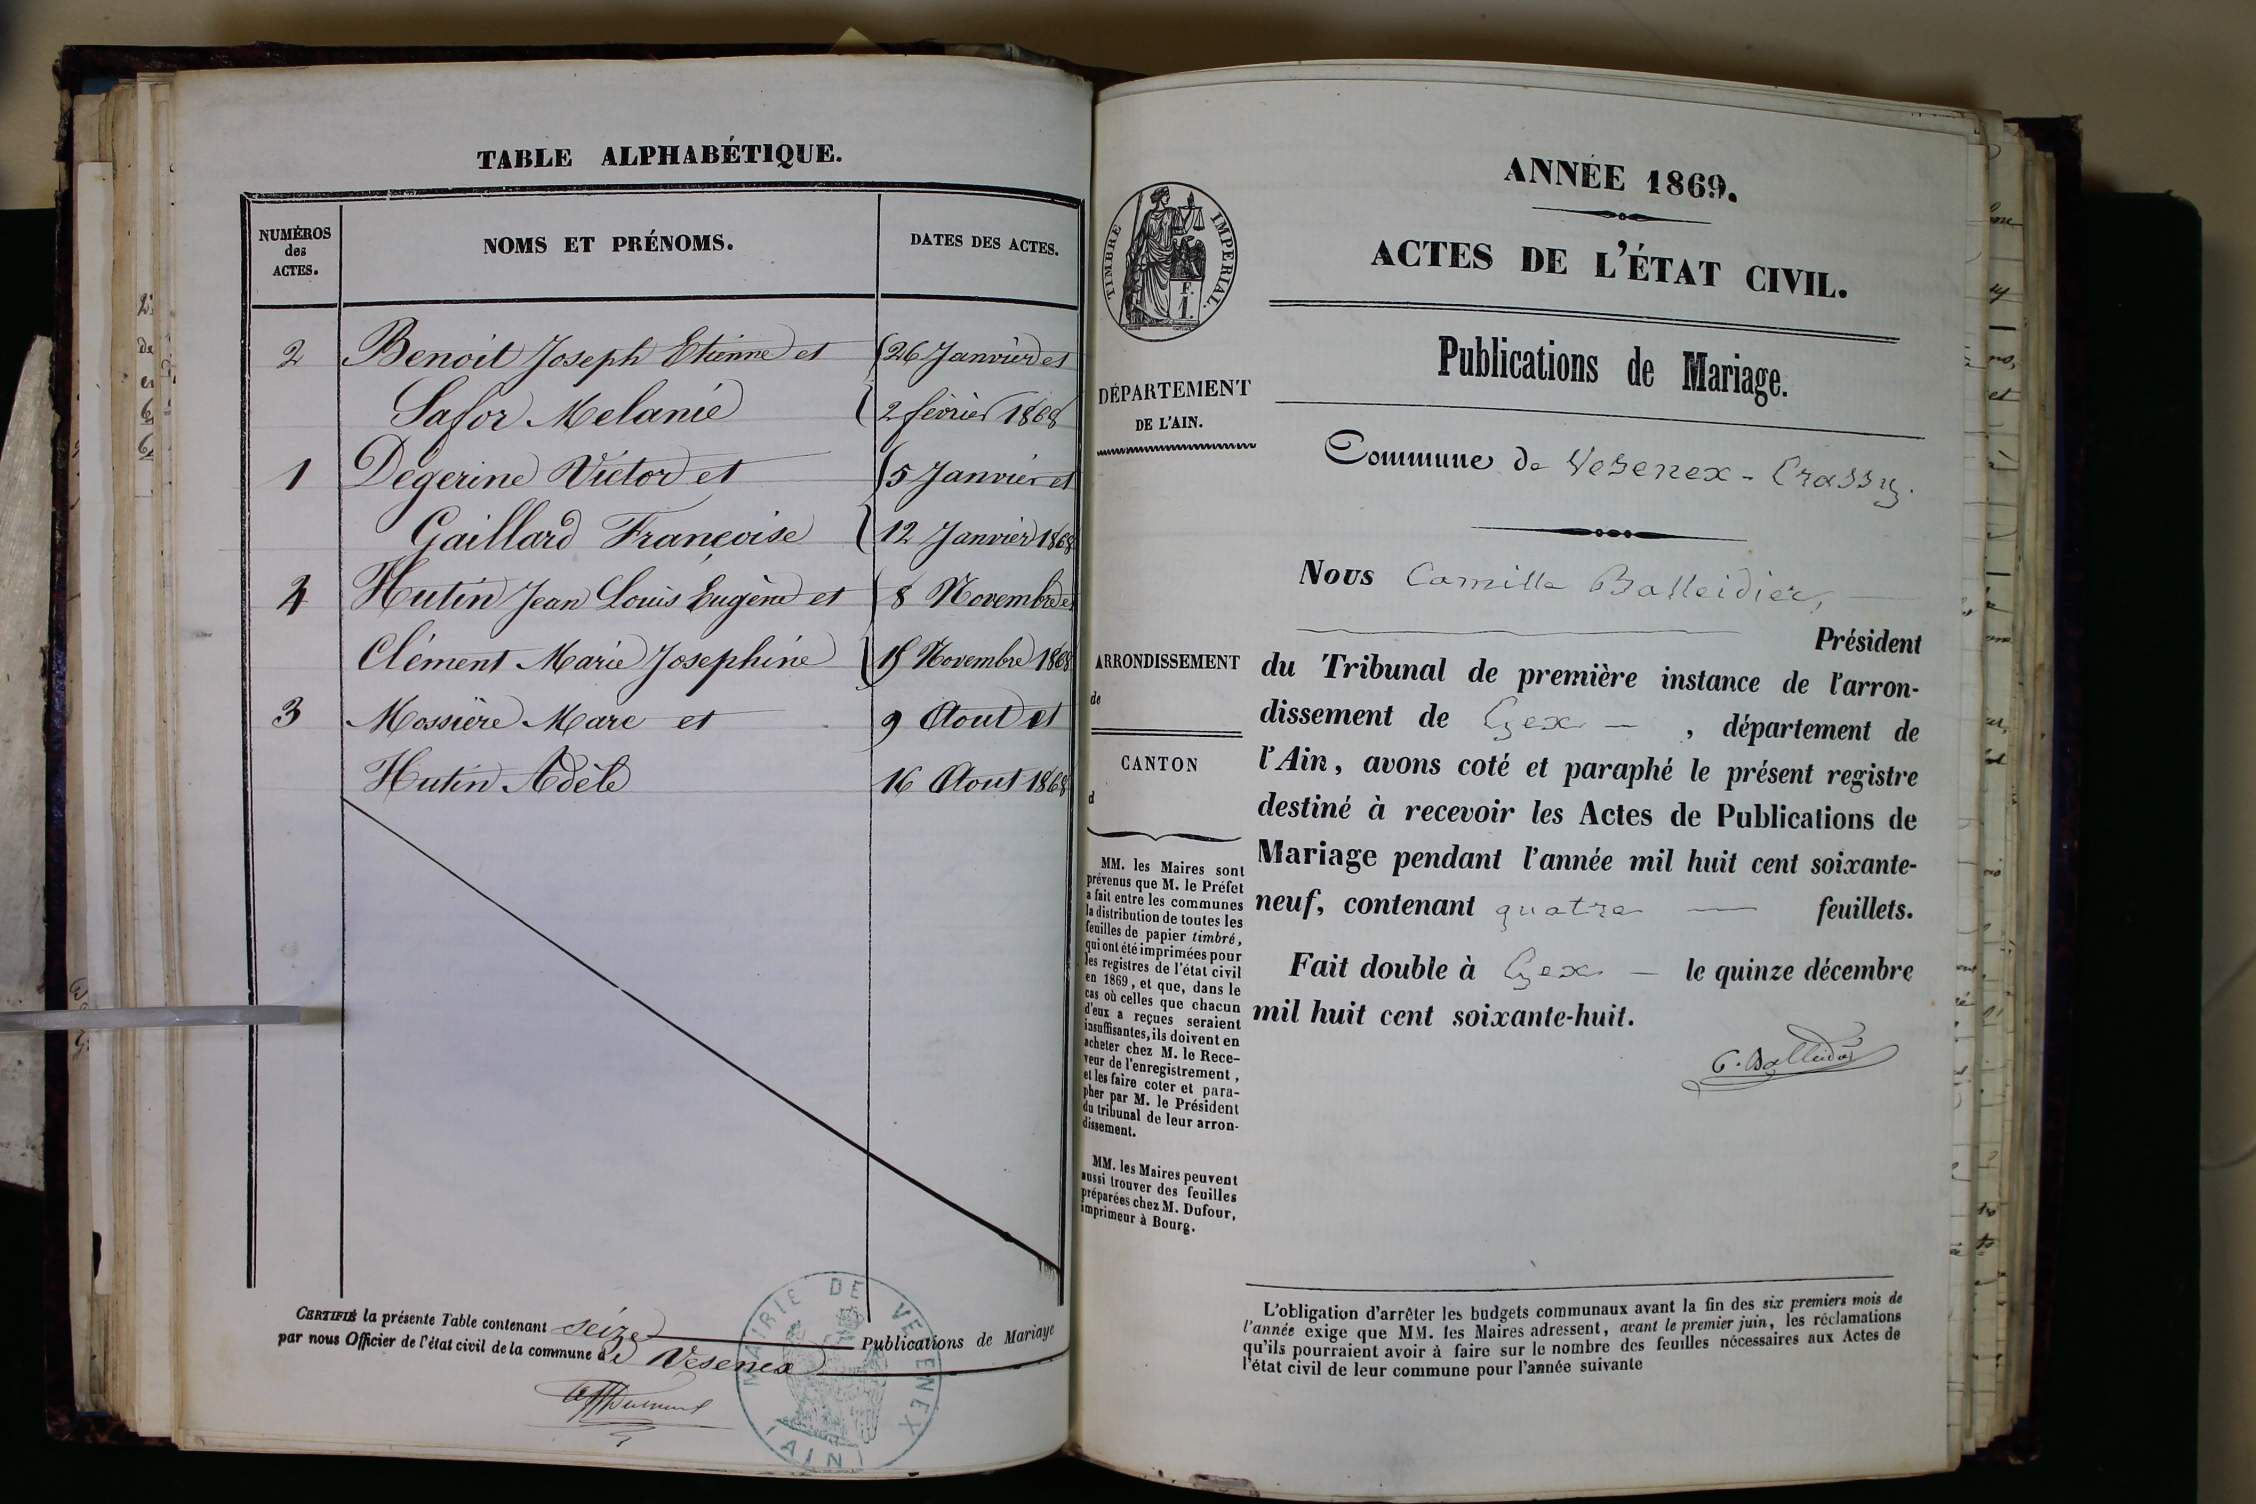 TABLE ALPHABÉTIQUE.
NUMÉROS
des
ACTES.
NOMS ET PRÉNOMS.
DATES DES ACTES.
2 Benoit Joseph Etienne et 26 Janvier et
Lafor Melanie 2 février 1868
1 Degerine Victor et 5 Janvier et
Gaillard Françoise 12 Janvier 1868
4 Hutin Jean Louis Eugène et 8 Novembre et
Clément Marie Josephine 15 Novembre 1868
3 Mossière Marc et 9 Aout et
Hutin Adèle 16 Aout 1868
CERTIFIÉ la présente Table contenant seize Publications de Mariage
par nous Officier de l'état civil de la commune de Vesenex
MAIRIE DE VESENEX
(AIN)
ANNÉE 1869.
TIMBRE IMPÉRIAL.
F.
1.
ACTES DE L'ÉTAT CIVIL.
Publications de Mariage.
DÉPARTEMENT
DE L'AIN.
Commune de Vesenex - Crassy.
Nous Camille Balleidier,
Président
ARRONDISSEMENT
de
du Tribunal de première instance de l'arron-
dissement de Gex , département de
CANTON
d
l'Ain, avons coté et paraphé le présent registre
destiné à recevoir les Actes de Publications de
Mariage pendant l'année mil huit cent soixante-
neuf, contenant quatre feuillets.
Fait double à Gex le quinze décembre
mil huit cent soixante-huit.
C. Balleidier
MM. les Maires sont
prévenus que M. le Préfet
a fait entre les communes
la distribution de toutes les
feuilles de papier timbré,
qui ont été imprimées pour
les registres de l'état civil
en 1869, et que, dans le
cas où celles que chacun
d'eux a reçues seraient
insuffisantes, ils doivent en
acheter chez M. le Rece-
veur de l'enregistrement,
et les faire coter et para-
pher par M. le Président
du tribunal de leur arron-
dissement.
MM. les Maires peuvent
aussi trouver des feuilles
préparées chez M. Dufour,
imprimeur à Bourg.
L'obligation d'arrêter les budgets communaux avant la fin des six premiers mois de
l'année exige que MM. les Maires adressent, avant le premier juin, les réclamations
qu'ils pourraient avoir à faire sur le nombre des feuilles nécessaires aux Actes de
l'état civil de leur commune pour l'année suivante